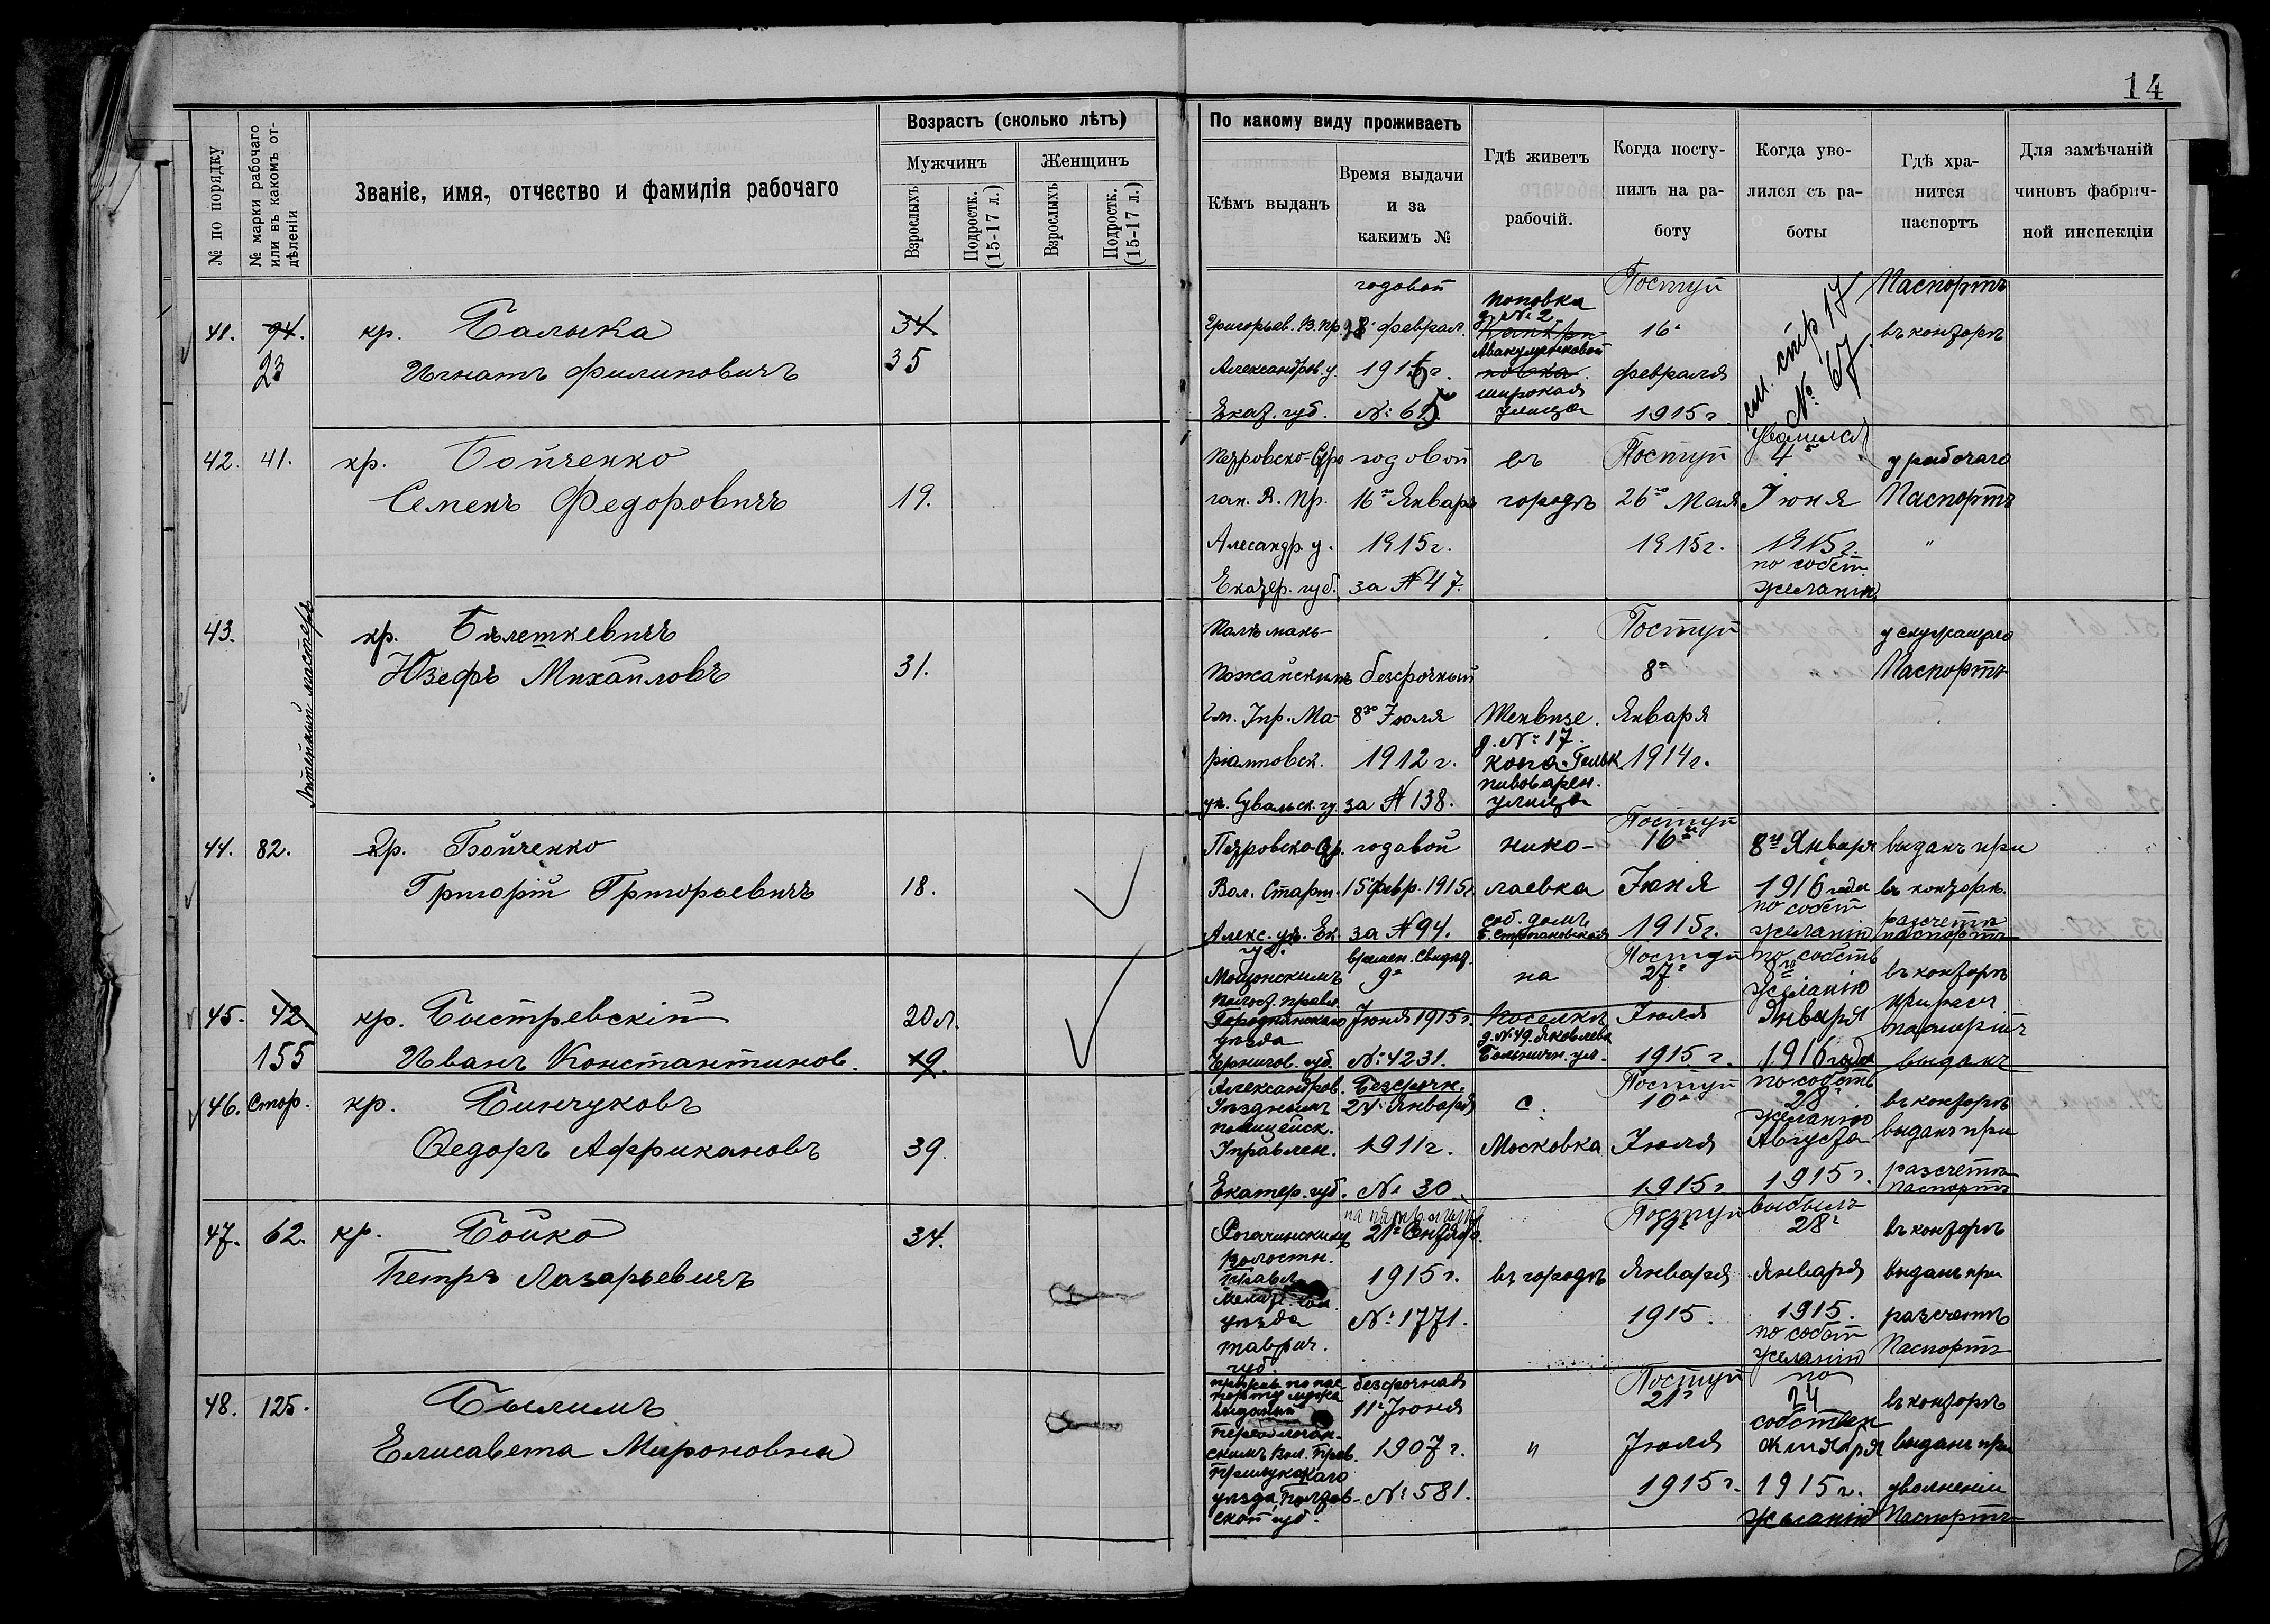 14
№ по порядку
№ марки рабочаго или въ какомъ от-дѣленіи
Званіе, имя, отчество и фамилія рабочаго
Возрастъ (сколько лѣтъ)
Мужчинъ
Женщинъ
Взрослыхъ
Подростк. (15-17 л.)
Взрослыхъ
Подростк. (15-17 л.)
По какому виду проживаетъ
Кѣмъ выданъ
Время выдачи и за какимъ №
Гдѣ живетъ рабочій.
Когда посту-пилъ на ра-боту
Когда уво-лился съ ра-боты
Гдѣ хра-нится паспортъ
Для замѣчаній чиновъ фабрич-ной инспекціи
41. 94. 23
кр. Балыка
Игнатъ Филиповичъ
34. 35
Григорьев. В. пр.
Александров. у.
Екат. губ.
годовой
феврал.
Поповка
д. № 2
Авакумянковой
широкая
улица
Поступ
16
февраля
1915 г.
см. стр 17
№ 67.
Паспортъ
въ конторѣ
42. 41.
кр. Бойченко
Семенъ Федоровичъ
19.
Александр. у.
Екатер. губ.
годовой
16го Января
1915 г.
за № 47.
въ
городѣ
Поступ
26го Мая
1915 г.
уволился
4го
Іюня
1915 г.
по собст
желанію
у рабочаго
Паспортъ
"
43.
Литейный мастеръ
кр.
Юзефъ Михайловъ
31.
безсрочный
8го Іюля
1912 г.
за № 138.
д. № 17.
пивоварен.
улица
Поступ
8го
Января
1914 г.
у служащаго
Паспортъ
44. 82.
кр. Бойченко
Григорій Григорьевичъ
18.
Вол. Старш.
Алекс. уѣ. Ек.
губ.
годовой
15 февр. 1915 г.
за № 94.
Нико-
лаевка
соб. домъ
Поступ
16го
Іюня
1915 г.
8го Января
1916 года
по собст
желанію
выданъ при
въ контор.
разсчетѣ
паспортъ
45. 42. 155
кр. Быстревскій
Иванъ Константинов.
20 л.
19.
Волост. правл.
Городнянскаго
уѣзда
Чернигов. губ.
времен. свидѣт.
9го
Іюня 1915 г.
№ 4231.
на
поселкѣ
д. № 49. Яковлева
Больничн. ул.
Поступ
27го
Іюля
1915 г.
по собств
8го
желанію
Января
1916 года
въ конторѣ
при расч
паспортъ
выданъ
46. Стор.
кр. Бинчуковъ
Ѳедоръ Африкановъ
39.
Александров.
Уѣзднымъ
полицейск.
Управлен.
Екатер. губ.
Безсрочн.
24го Января
1911 г.
№ 30.
с.
Московка
Поступ
10го
Іюля
1915 г.
по собств
28го
желанію
Августа
1915 г.
въ конторѣ
выданъ при
разсчетѣ
паспортъ
47. 62.
кр. Бойко
Петръ Лазарьевичъ
34.
Рогачинскимъ
Волостн.
правл.
уѣзда
таврич.
губ.
21го Сентяб.
1915 г.
№ 1771.
въ городѣ
Поступ
Января
1915.
выбылъ
28го
Января
1915.
по собст
желанію
въ конторѣ
выданъ при
разсчетѣ
Паспортъ
48. 125.
Былимъ
Елисавета Мироновна
уѣзда, Полтав-
ской губ.
безсрочная
11го Іюня
1907 г.
№ 581.
"
Поступ
21го
Іюля
1915 г.
по
24
собствен
октября
1915 г.
желанію
въ конторѣ
выданъ при
уволненіи
Паспортъ